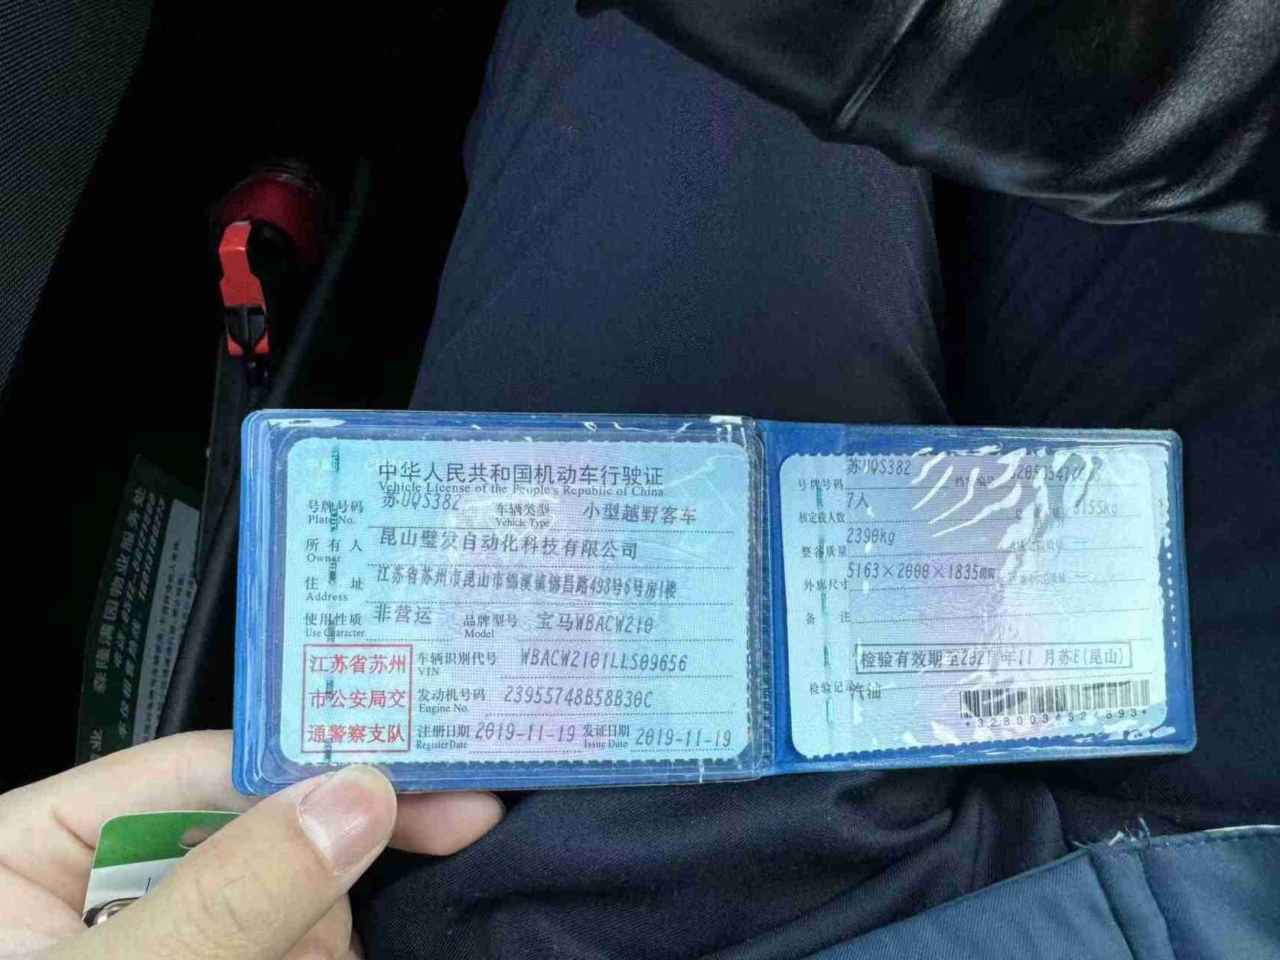 中华人民共和国机动车行驶证
Vehicle License of the People's Republic of China
号牌号码 苏UQS382 车辆类型 小型越野客车
Plate No. Vehicle Type
所有人 昆山璧发自动化科技有限公司
Owner
住址 江苏省苏州市昆山市锦溪镇锦昌路498号6号房1楼
Address
使用性质 非营运 品牌型号 宝马WBACW210
Use Character Model
江苏省苏州
市公安局交
通警察支队
车辆识别代号 WBACW2101LLS09656
VIN
发动机号码 23955748B58B30C
Engine No.
注册日期 2019-11-19 发证日期 2019-11-19
Register Date Issue Date
号牌号码 苏UQS382
核定载人数 7人 3155kg
整备质量 2390kg
外廓尺寸 5163×2000×1835
备注
检验有效期至2021年11月苏E(昆山)
检验记录 汽油